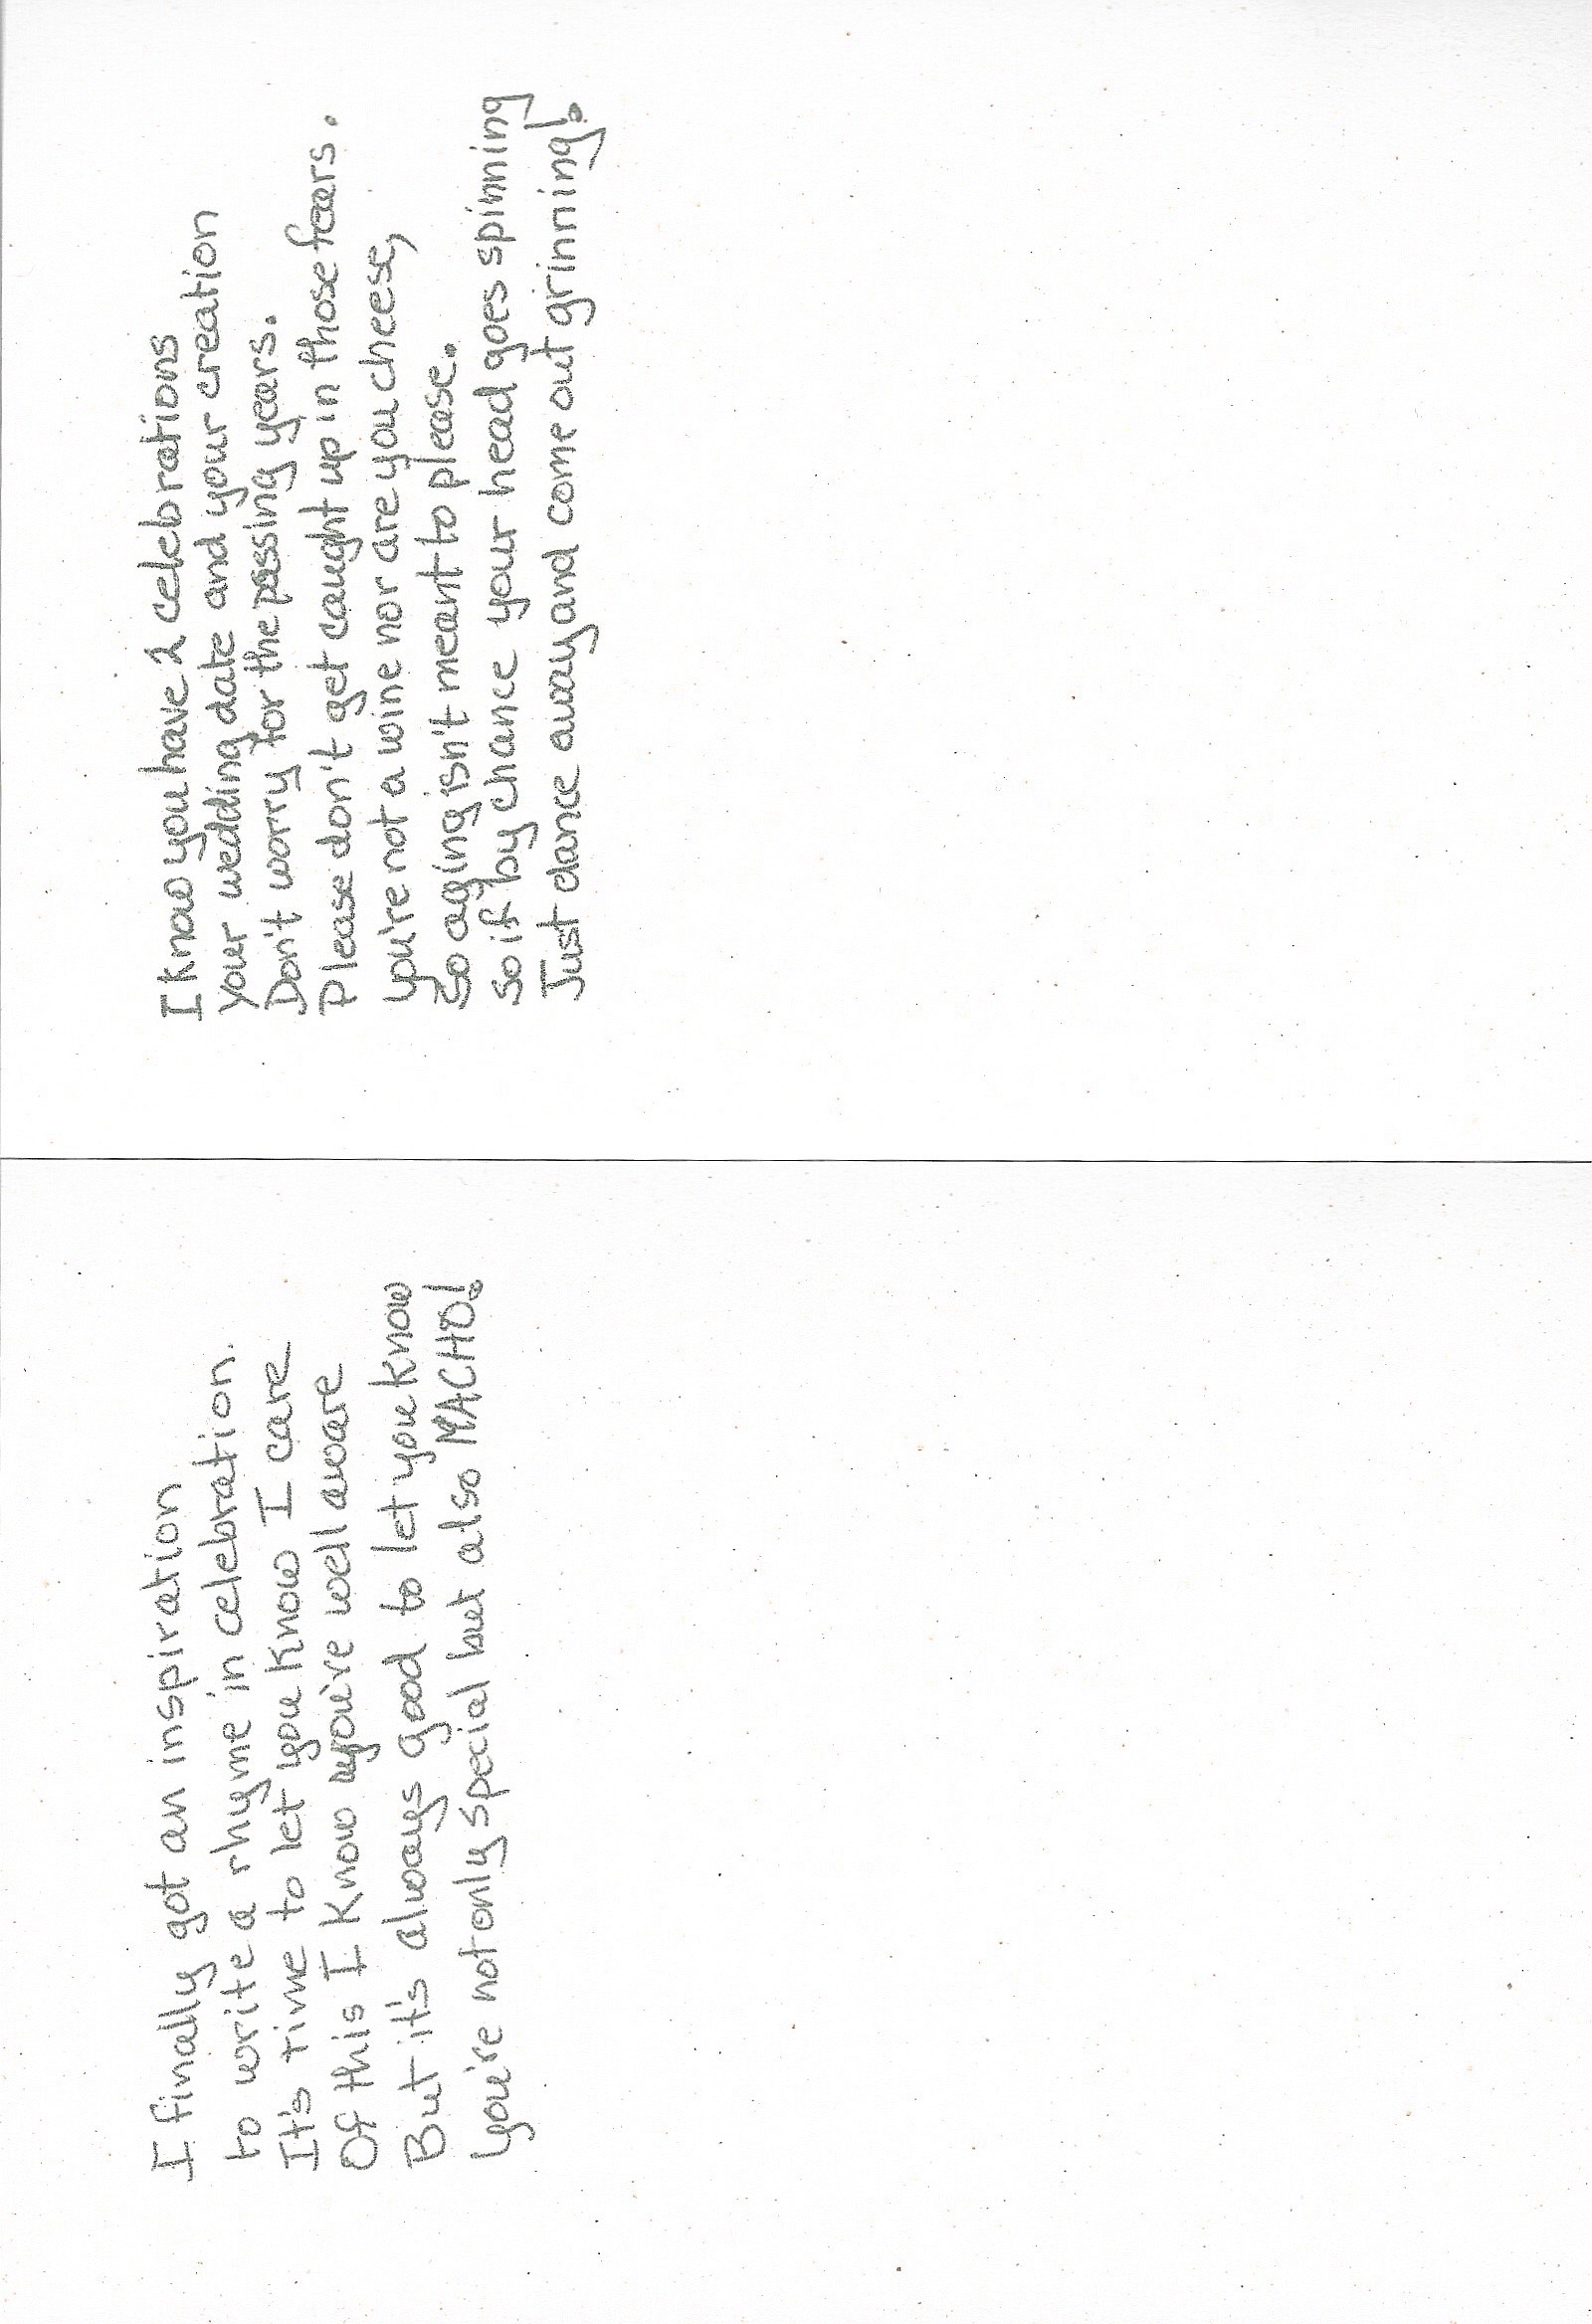 I finally got an inspiration
to write a rhyme in celebration.
It's time to let you know I care
Of this I know you're well aware
But it's always good to let you know
you're not only special but also MACHO!
I know you have 2 celebrations
your wedding date and your creation
Don't worry for the passing years.
Please don't get caught up in those fears.
you're not a wine nor are you cheese,
So aging isn't meant to please.
So if by chance your head goes spinning
Just dance away and come out grinning!